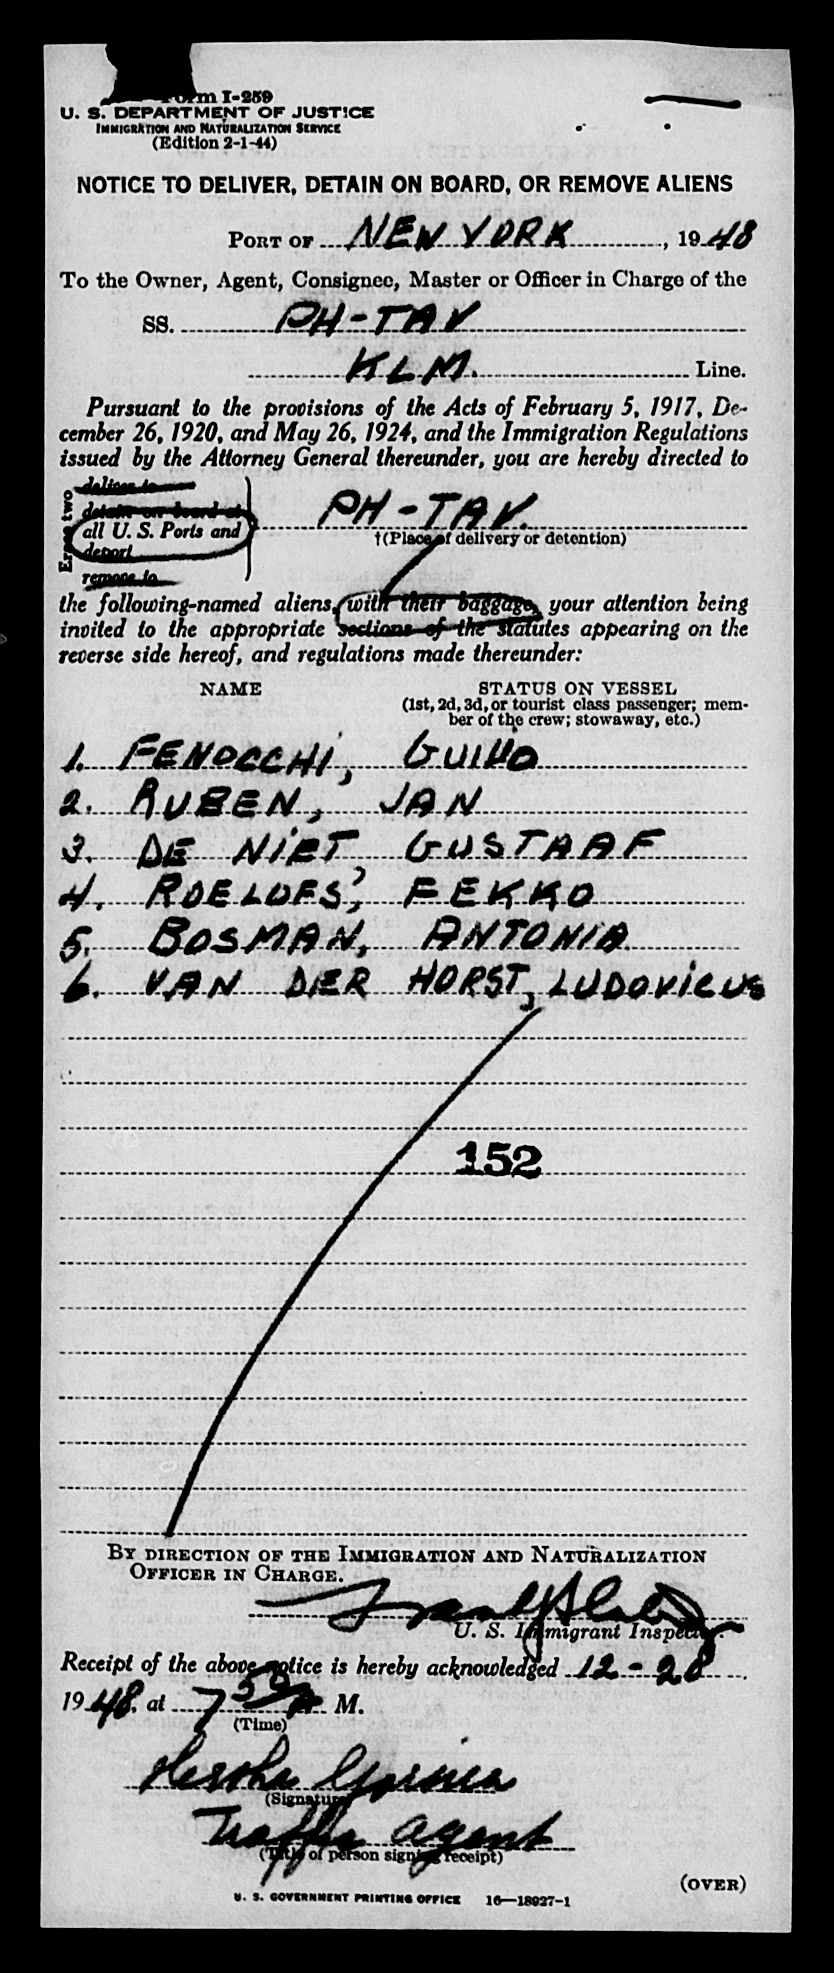 Form I-259
U. S. DEPARTMENT OF JUSTICE
IMMIGRATION AND NATURALIZATION SERVICE
(Edition 2-1-44)
NOTICE TO DELIVER, DETAIN ON BOARD, OR REMOVE ALIENS
PORT OF NEW YORK, 1948
To the Owner, Agent, Consignee, Master or Officer in Charge of the
SS. PH-TAV
KLM. Line.
Pursuant to the provisions of the Acts of February 5, 1917, De-
cember 26, 1920, and May 26, 1924, and the Immigration Regulations
issued by the Attorney General thereunder, you are hereby directed to
Erase two
deliver to
detain on board at
all U. S. Ports and
deport
remove to
PH-TAV.
†(Place of delivery or detention)
the following-named aliens, with their baggage, your attention being
invited to the appropriate sections of the statutes appearing on the
reverse side hereof, and regulations made thereunder:
NAME STATUS ON VESSEL
(1st, 2d, 3d, or tourist class passenger; mem-
ber of the crew; stowaway, etc.)
1. FENOCCHI, GUIDO
2. RUBEN, JAN
3. DE NIET, GUSTAAF
4. ROELOFS, FEKKO
5. BOSMAN, ANTONIA
6. VAN DER HORST, LUDOVICUS
152
BY DIRECTION OF THE IMMIGRATION AND NATURALIZATION
OFFICER IN CHARGE.
U. S. Immigrant Inspector.
Receipt of the above notice is hereby acknowledged 12-28
1948, at 7 50 A M.
(Time)
(Signature)
Traffic Agent
(Title of person signing receipt)
(OVER)
U. S. GOVERNMENT PRINTING OFFICE 16—18927-1